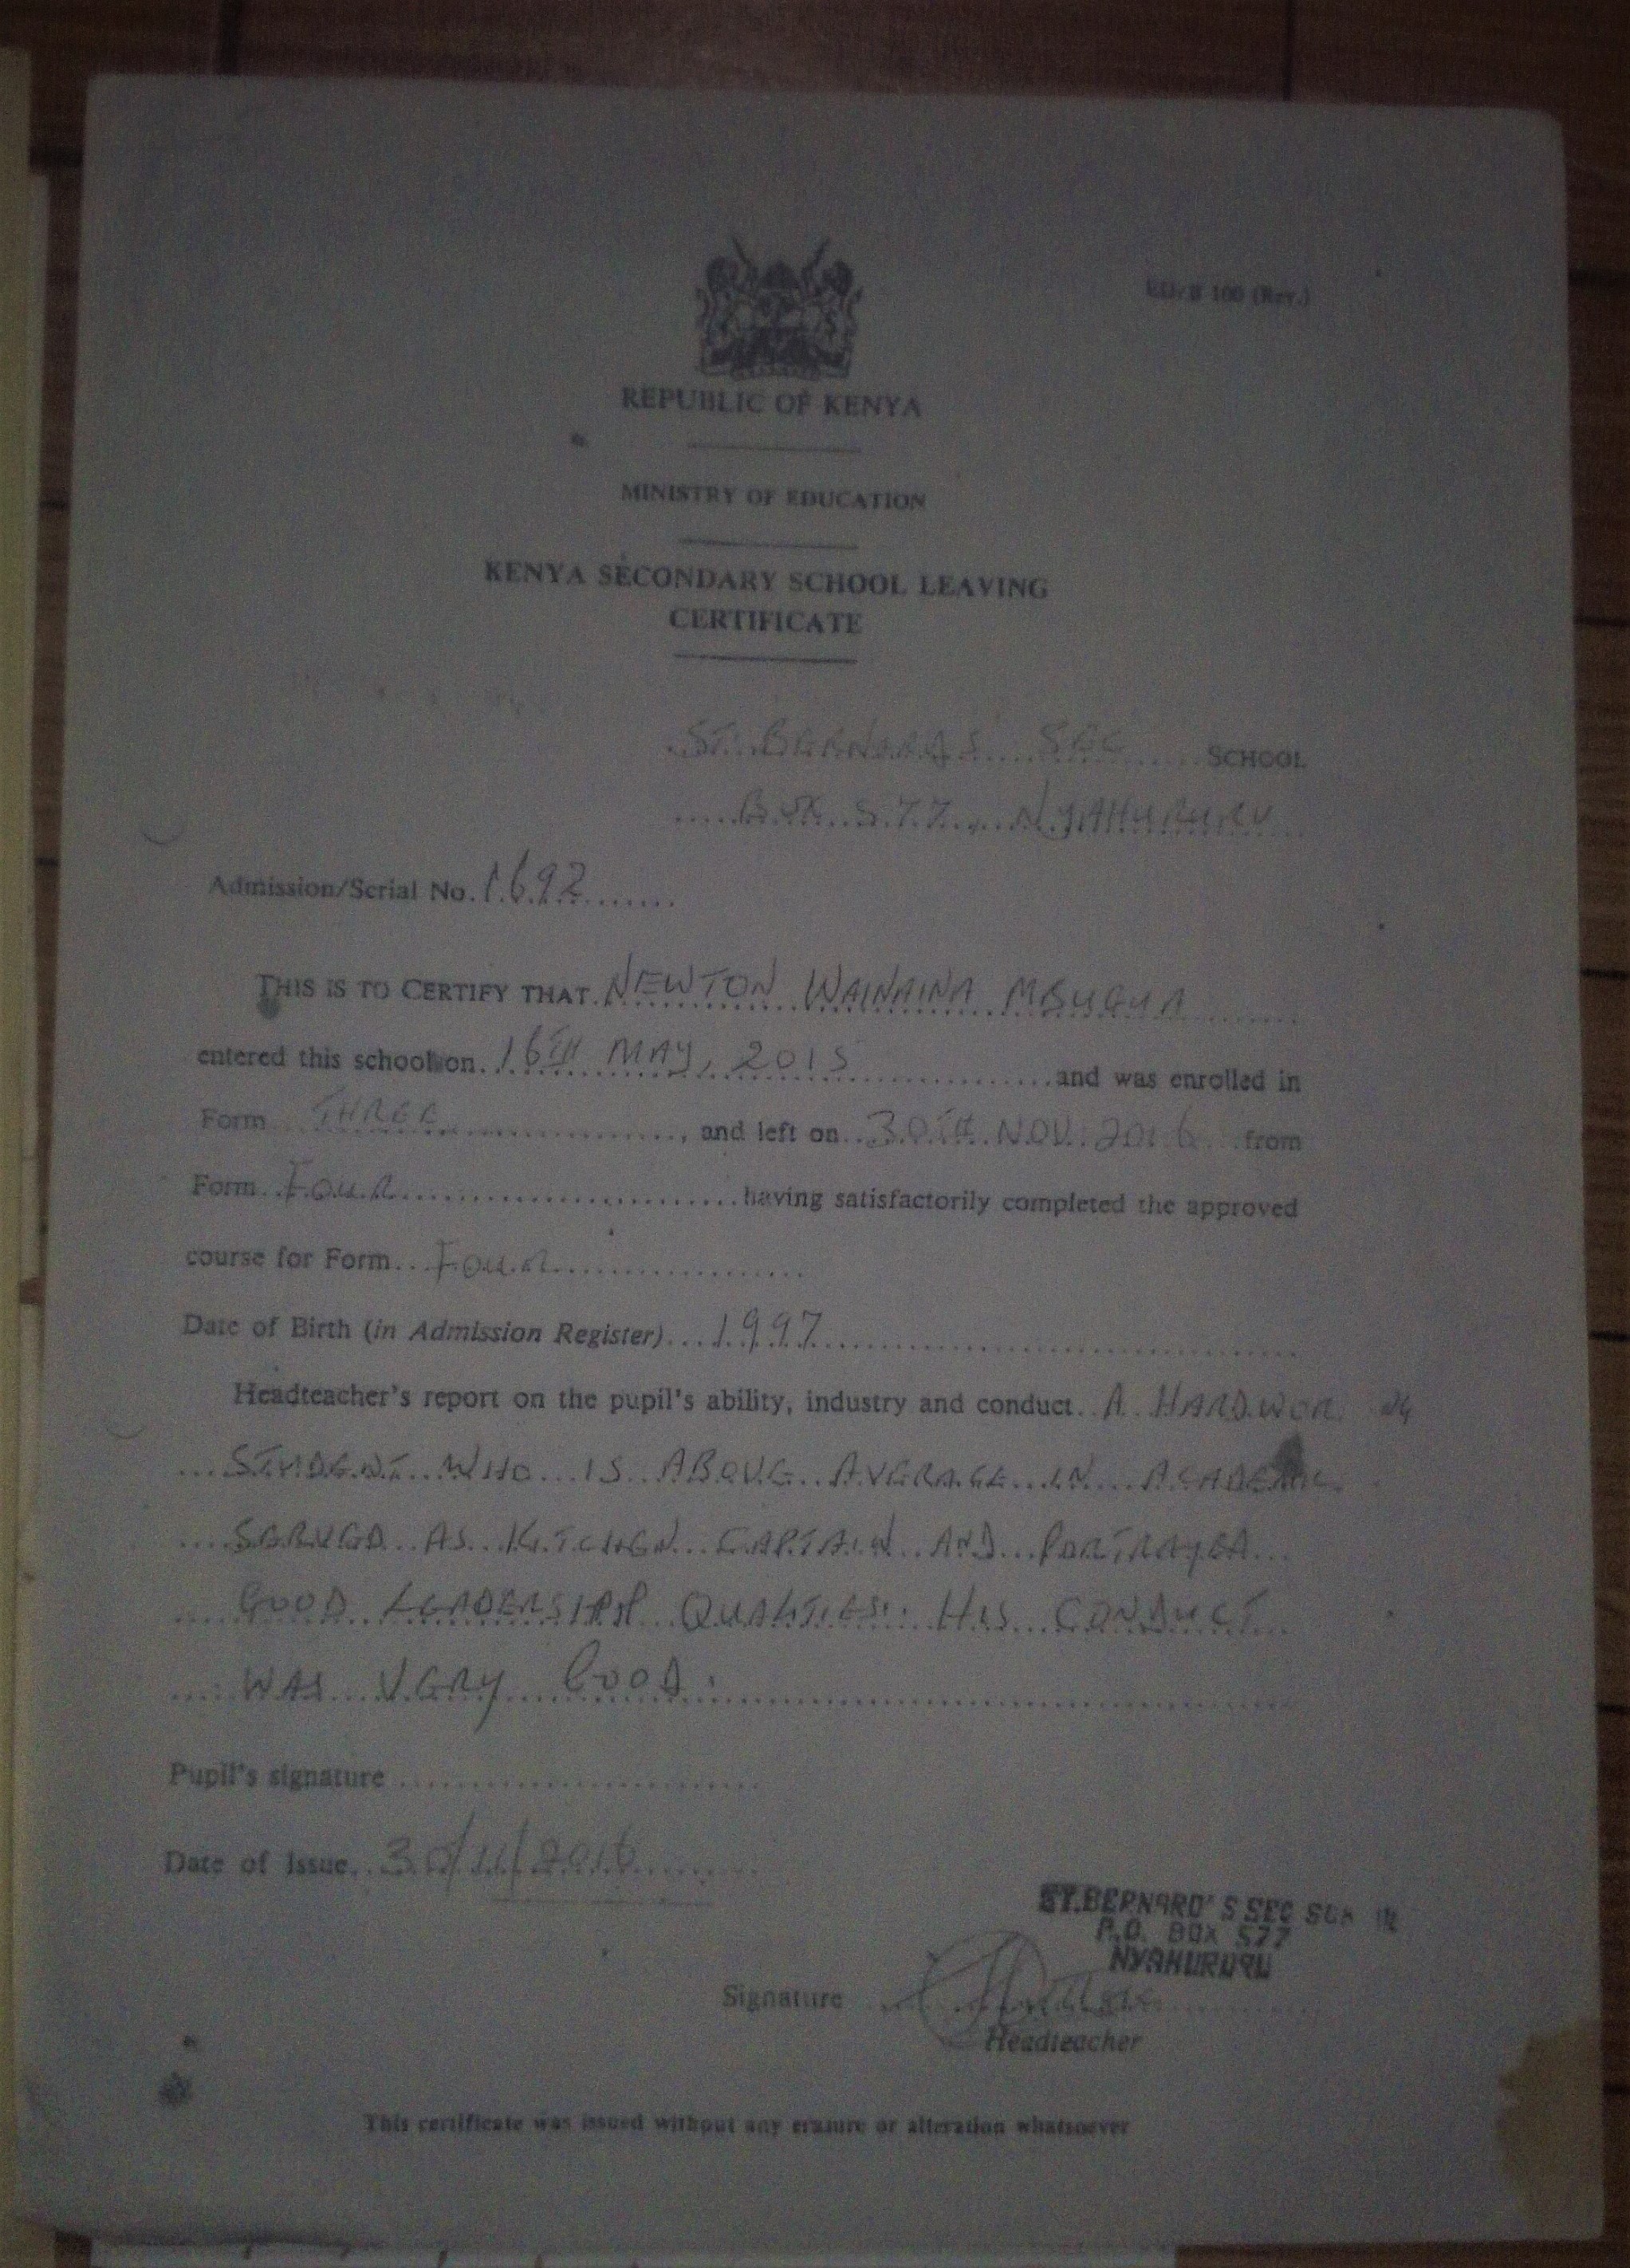 100 (Rev.)
REPUBLIC OF KENYA
MINISTRY OF EDUCATION
KENYA SECONDARY SCHOOL LEAVING
CERTIFICATE
ST. BERNARD'S SEC SCHOOL
BOX 577, NYAHURURU
Admission/Serial No. 1692
THIS IS TO CERTIFY THAT NEWTON WAINAINA MBUGUA
entered this school on 16TH MAY, 2015 and was enrolled in
Form THREE, and left on 30TH NOV. 2016 from
Form FOUR having satisfactorily completed the approved
course for Form FOUR
Date of Birth (in Admission Register) 1997
Headteacher's report on the pupil's ability, industry and conduct. A HARDWOR
STUDENT WHO IS ABOVE AVERAGE IN
SERVED AS KITCHEN CAPTAIN AND PORTRAYED
GOOD LEADERSHIP QUALITIES. HIS CONDUCT
WAS VERY GOOD.
Pupil's signature
Date of Issue 30/11/2016
ST.BERNARD'S SEC
P.O. BOX 577
NYAHURURU
Signature
Headteacher
This certificate was issued without any erasure or alteration whatsoever